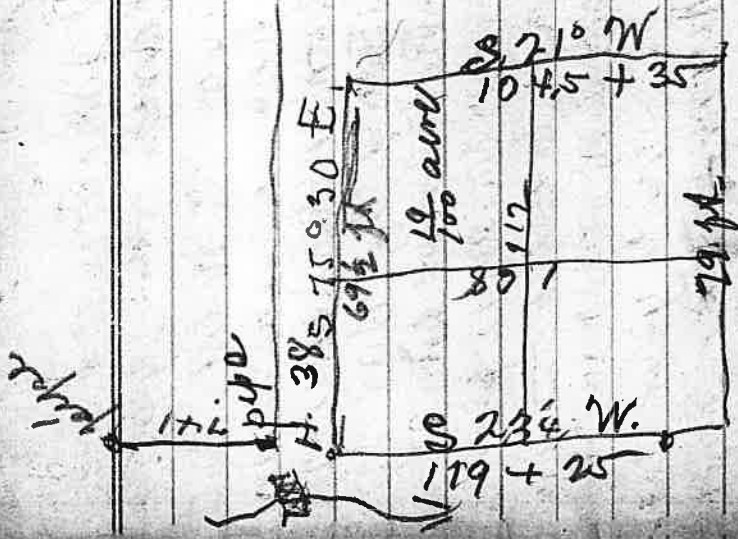 S. 21° W
104,5 + 35
75° 30 E
69½ ft
19/100 acre
117
79 ft.
80 1
38,5
pipe
S 23¼ W.
119 + 25